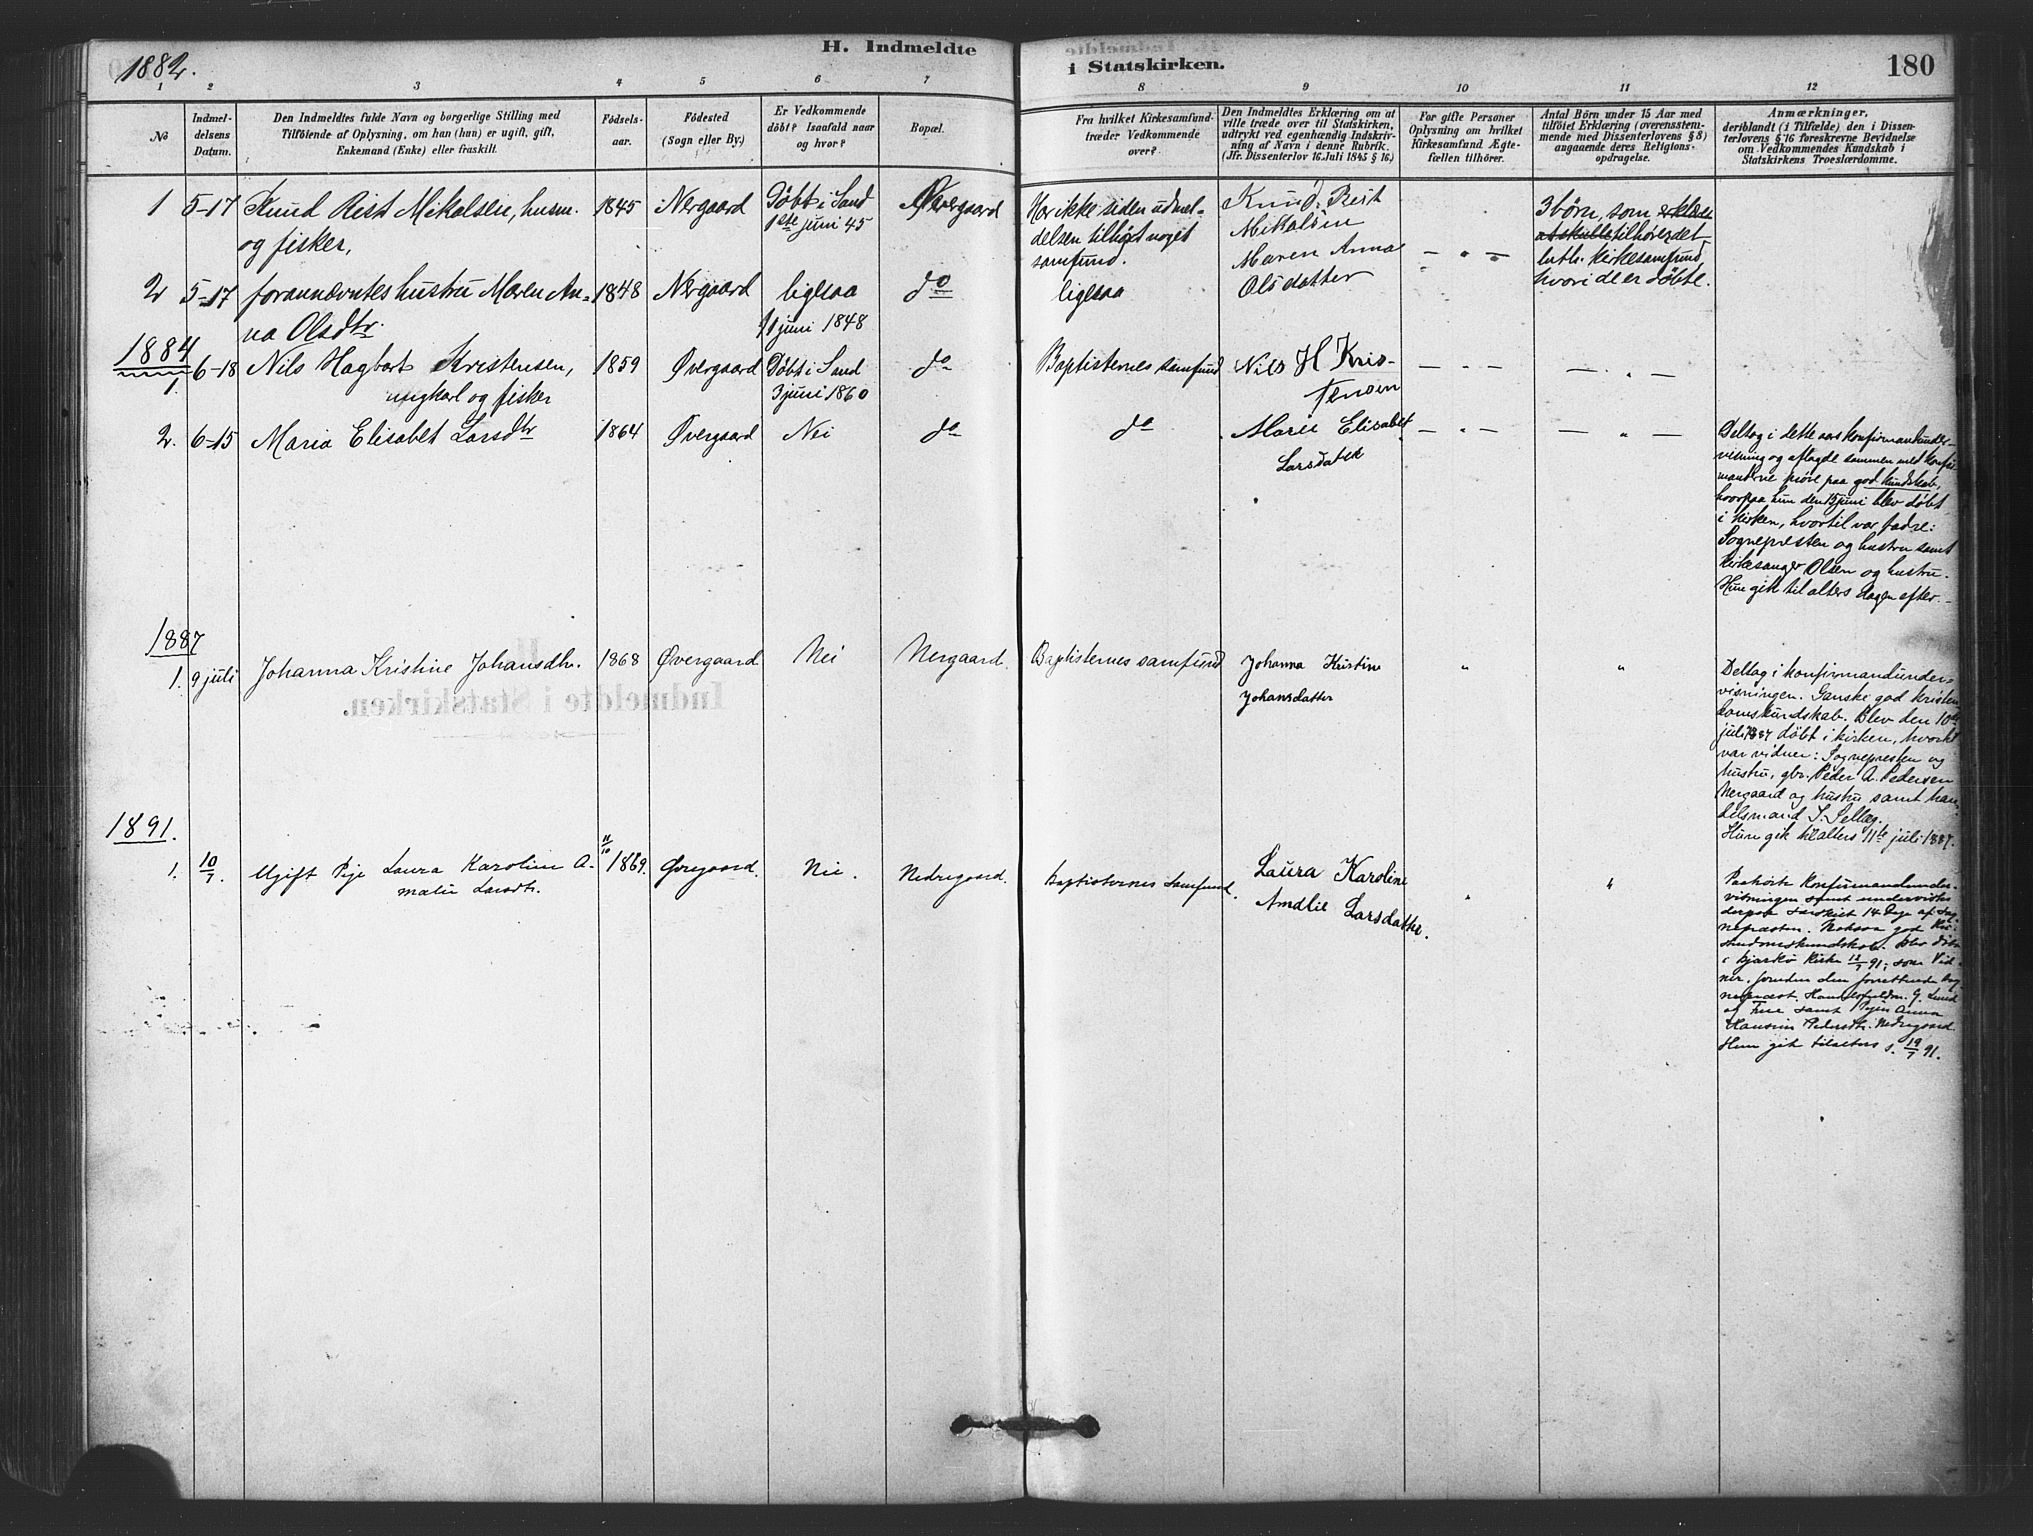 1882.
H. Indmeldte
i Statskirken.
180
1 2 3 4 5 6 7 8 9 10 11 12
No
Indmel-
delsens
Datum.
Den Indmeldtes fulde Navn og borgerlige Stilling med
Tilföiende af Oplysning, om han (hun) er ugift, gift,
Enkemand (Enke) eller fraskilt.
Födsels-
aar.
Födested
(Sogn eller By.)
Er Vedkommende
döbt? Isaafald naar
og hvor?
Bopæl.
Fra hvilket Kirkesamfund
træder Vedkommende
over?
Den Indmeldtes Erklæring om at
ville træde over til Statskirken,
udtrykt ved egenhændig Indskriv-
ning af Navn i denne Rubrik.
(Jfr. Dissenterlov 16 Juli 1845 § 16.)
For gifte Personer
Oplysning om hvilket
Kirkesamfund Ægte-
fællen tilhörer.
Antal Börn under 15 Aar med
tilföiet Erklæring (overensstem-
mende med Dissenterlovens § 8)
angaaende deres Religions-
opdragelse.
Anmærkninger,
deriblandt (i Tilfælde) den i Dissen-
terlovens § 16 foreskrevne Bevidnelse
om Vedkommendes Kundskab i
Statskirkens Troeslærdomme.
1 5-17 Knud Rist Mikalsen, husm.
og fisker,
1845 Nergaard
Döbt i Sand
1ste juni 45
Øvergaard
Har ikke siden udmel-
delsen tilhørt noget
samfund.
Knud Rist
Mikalsen
3 børn, som erklæres
at skulle tilhører det
luth. kirkesamfund,
hvori de er døbte.
2 5-17 forannævntes hustru Maren An-
na Olsdtr.
1848 Nergaard
ligesaa
11 juni 1848
do
ligesaa
Maren Anna
Olsdatter
— " —
1884
1. 6-18 Nils Hagbart Kristensen,
ungkarl og fisker
1859 Øvergaard
Döbt i Sand
3 juni 1860
do
Baptisternes samfund
Nils H Kris-
tensen
— " — — " —
2. 6-15 Maria Elisabet Larsdtr
1864 Øvergaard Nei do do
Marie Elisabet
Larsdatter
— " — — " —
Deltog i dette aars konfirmandunder-
visning og aflagde sammen med konfir-
manderne prøve paa god kundskab,
hvorpaa hun den 15 juni blev døbt
i kirken, hvortil var fadre:
Sognepresten og hustru samt
kirkesanger Olsen og hustru.
Hun gik til alters dagen efter.
1887
1. 9 juli Johanna Kristine Johansdtr.
1868 Øvergaard Nei Nergaard. Baptisternes samfund
Johanna Kristine
Johansdatter
" "
Deltog i konfirmandunder-
visningen. Ganske god kristen-
domskundskab. Blev den 10de
juli 1887 døbt i kirken, hvortil
var vidner: Sognepresten og
hustru, gbr. Peder A. Pedersen
Nergaard og hustru samt han-
delsmand I. Selleg.
Hun gik til alters 11te juli 1887.
1891.
1. 10/7. Ugift Pige Laura Karoline A-
malie Larsdtr.
11/10 1869. Øvregaard. Nei. Nedregaard. Baptisternes Samfund.
Laura Karoline
Amalie Larsdatter.
" "
Paahørte Konfirmandunder-
visningen samt undervistes
derpaa særskilt 14 Dage af Sog-
nepræsten. Noksaa god Kri-
stendomskundskab. Blev døbt
i Bjarkø Kirke 12/7 91; som Vid-
ner, foruden den forrettende Sog-
nepræst, Handelsfuldm. G. Lund
og Frue samt Pigen Anna
Hansine Pedersdtr. Nedregaard.
Hun gik tilalters s. 19/7 91.